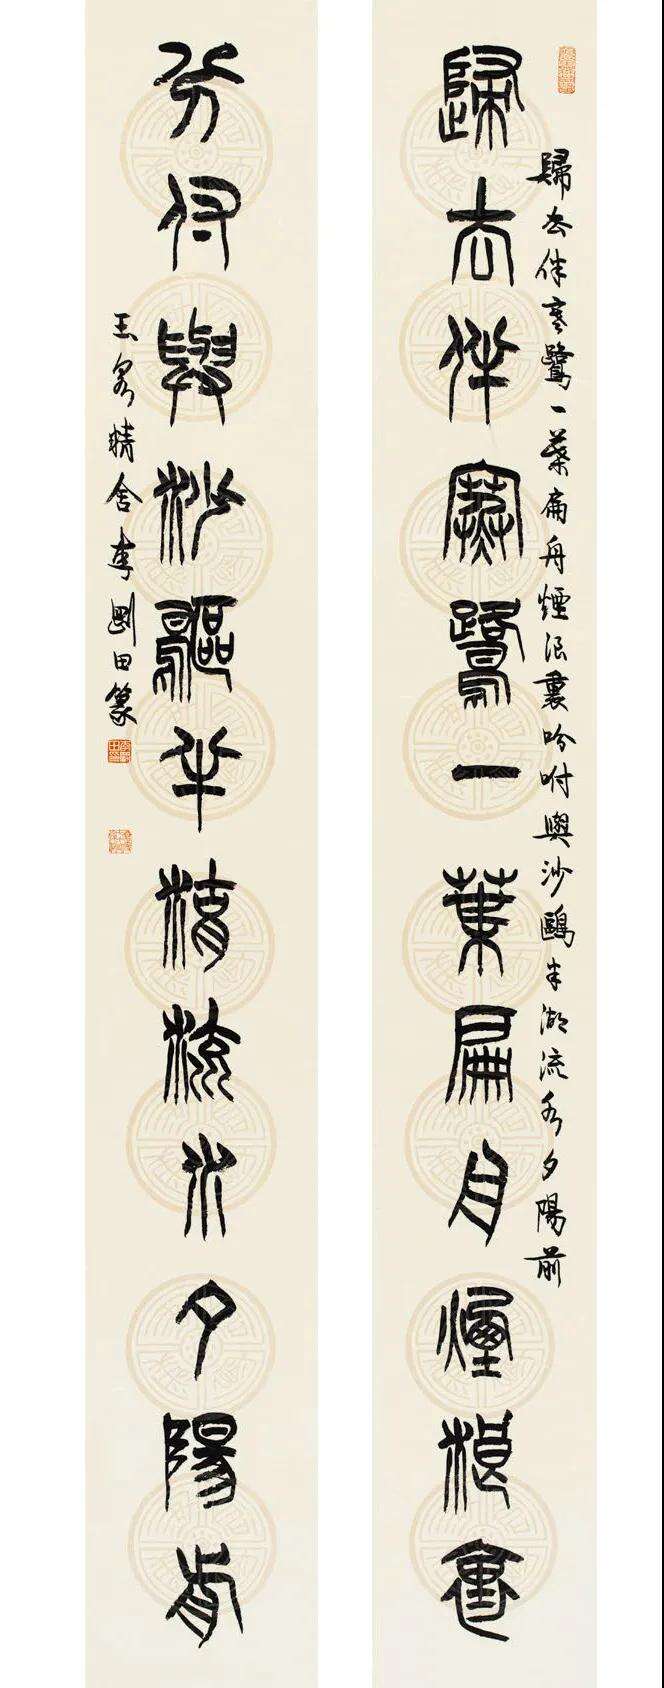 歸去伴寒鷺一葉扁舟煙浪裏吩咐與沙鷗半湖流水夕陽前
歸去伴寒鷺一葉扁舟煙浪裏
分付與沙鷗半湖流水夕陽前
玉泉精舍李剛田篆